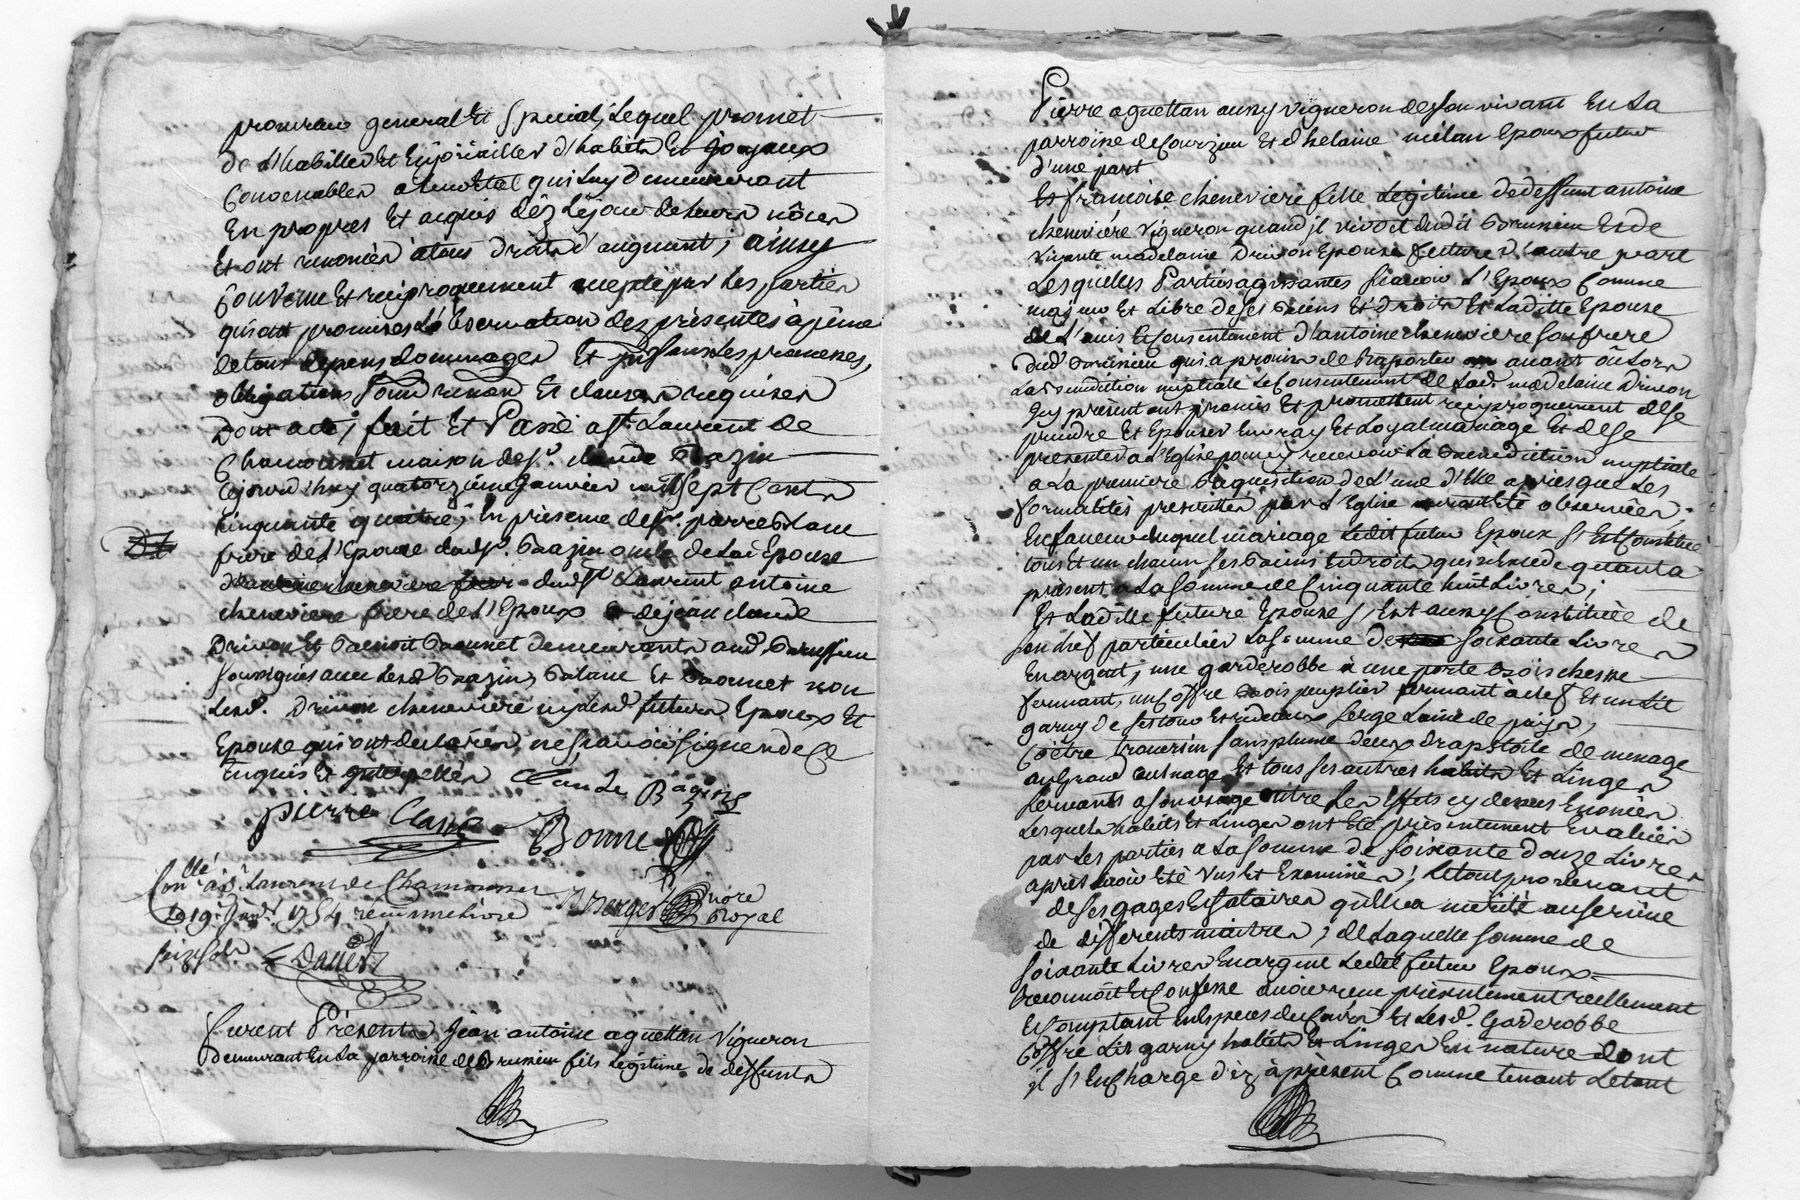 procureur general et special, Lequel promet
de L'habiller et Enjoüailler d'habits Et Joyaux
Convenables a Leur Etat qui Luy demeureront
En propres Et acquis dèz Le jour de Leurs nôces
Et ont renoncés à tous droits d'augment, ainsy
Convenu Et reciproquement accepté par Les parties
qui ont promises L'observation des présentes à peine
de tous depens dommages Et sous Les promesses,
obligations soum. renon. Et clauses requises
Dont acte, fait Et Passé a St. Laurent de
Chamousset maison de Sr. claude Bazin
Cejourd'huy quatorzieme Janvier mil Sept Cents
Cinquante quatre, En présence de Sr. pierre
frere de L'Epouse dud. Sr. Bazin oncle de Lad. Epouse
dud. St Laurent antoine
chenevierre frere de L'Epoux de jean claude
Drivon Et Benoit Bonnet demeurants aud. Brussieu
soussignés avec Lesd. Bazin, Et Bonnet non
Lesd. Drivon cheneviere ny Lesd. futurs Epoux Et
Epouse qui ont declarés ne sçavoir signer de ce
Enquis Et interpellés Claude Bazin
pierre Bonnet
Con.llé à St Laurens de Chamousset
le 19e. Janv. 1754 reçu une livre
six sols Berger nore
Royal
Furent Présents Jean antoine aguettan Vigneron
demeurant En La parroisse de Brussieu fils Légitime de deffunts
Pierre aguettan aussy vigneron de son vivant En La
parroisse de Courzieu Et d'helaine milan Epoux futur
d'une part
Et françoise cheneviere fille Légitime de deffunt antoine
cheneviére Vigneron quand il vivoit dudit Brussieu Et de
vivante madelaine Drivon Epouse future d'autre part
Lesquelles Parties agissantes sçavoir L'Epoux Comme
majeur Et Libre de ses Biens Et droits Et Laditte Epouse
de L'avis Et Consentement d'antoine cheneviere son frere
dud. Brussieu qui a promis de Raporter avant ou Lors
La Benediction nuptiale Le Consentement de Lad. madelaine Drivon
Icy présent ont promis Et promettent reciproquement de se
prendre Et Epouser En vray Et Loyal mariage Et de se
présenter a L'Eglise pour y recevoir La Benediction nuptiale
a La premiere Requisition de L'une d'Elle apries que Les
formalités prescrittes par L'Eglise auront été observées,
En faveur duquel mariage Ledit futur Epoux s'Est Constitué
tous Et un chacun ses Biens Et droits qu'il Evalue de quant à
présent a La somme de Cinquante huit Livres;
Et Laditte future Epouse s'Est aussy Constituée de
son chef particulier La somme de soixante Livres
En argent, une garderobbe à une porte Bois chesne
fermant, un Coffre Bois peuplier fermant a clef Et un Lit
garny de ses tour Et rideaux serge Laine de pays,
Coëtre traversin sans plume deux draps toile de menage
Et tous ses autres habits Et Linges
servants a son usage outre Les Effets cy dessus Enoncés
Lesquels habits Et Linges ont Eté présentement Evalués
par Les parties a La somme de soixante douze Livres
après avoir Eté vus Et Examinés, Le tout provenant
de ses gages Et salaires qu'Elle a mérité au service
de differents maitres, de Laquelle somme de
soixante Livres En argent Ledit futur Epoux
reconnoit Et Confesse avoir reçu présentement réellement
Et Comptant En Especes du Cours Et Lesd. Garderobbe
Coffre Lit garny habits Et Linges En nature dont
il s'En Charge d'èz à présent Comme tenant Le tout